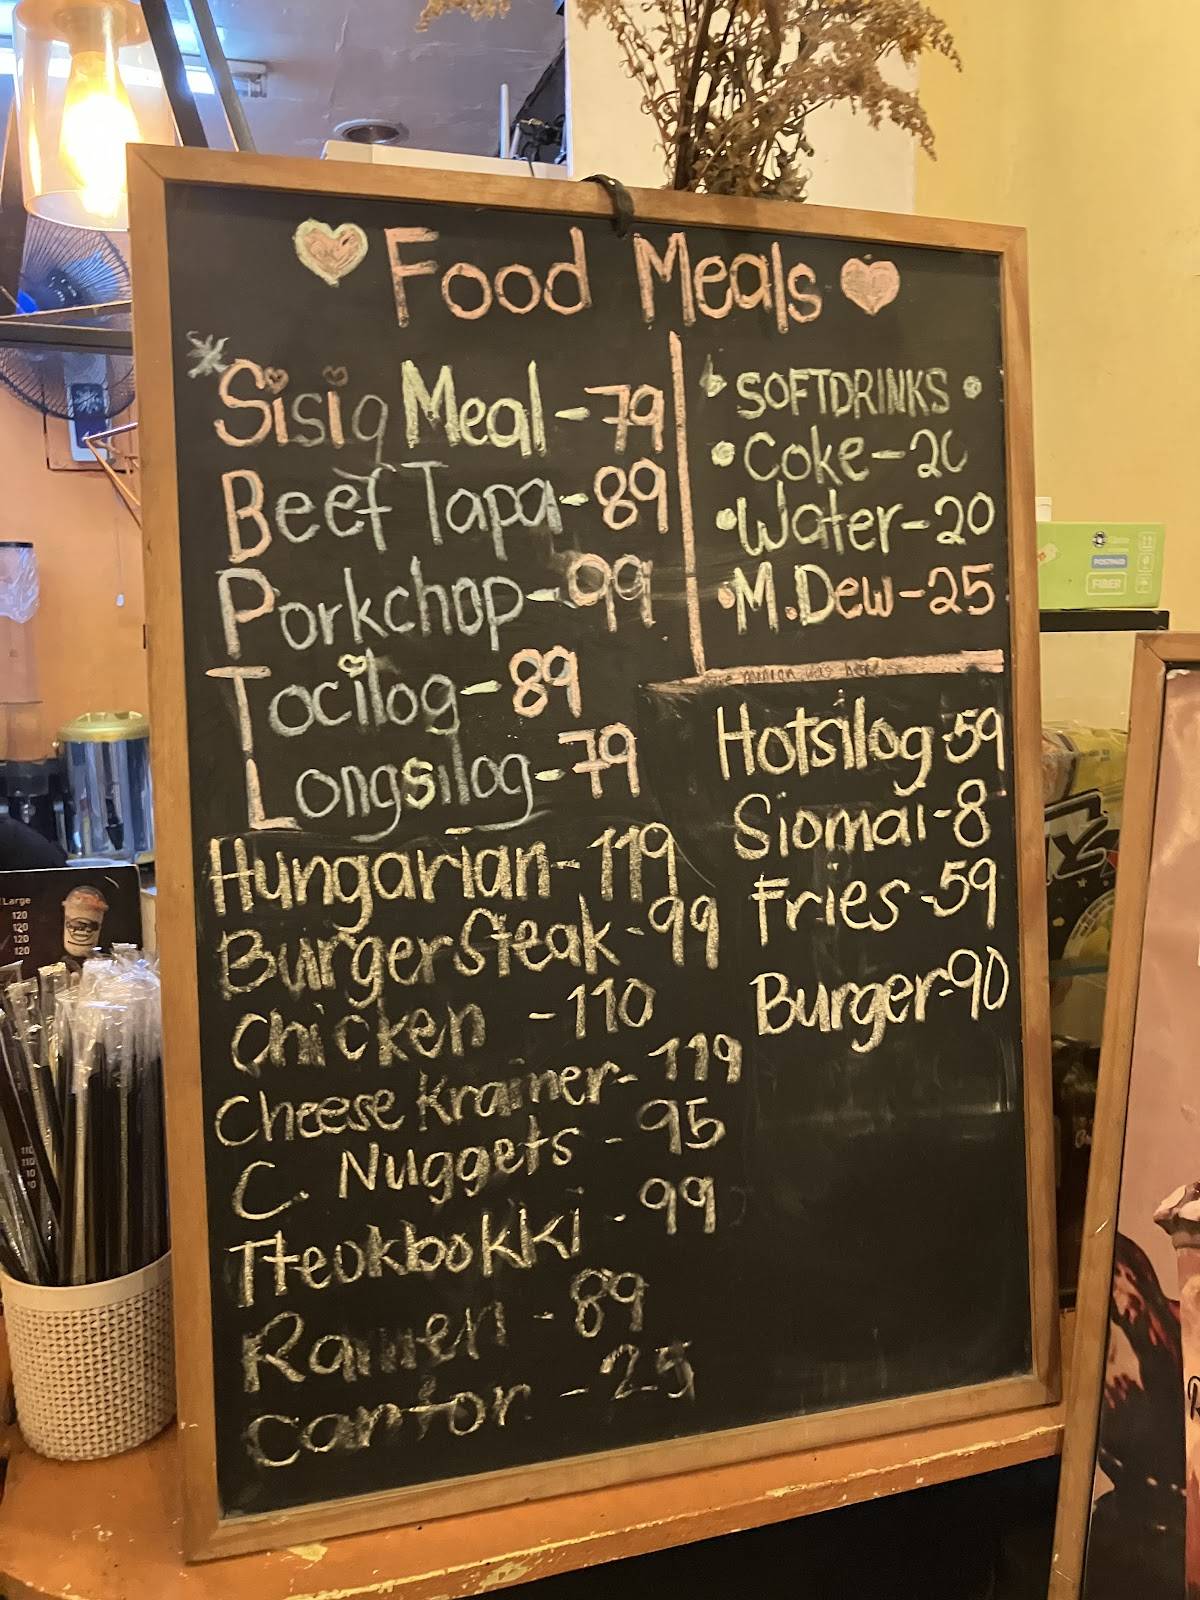 Food Meals
Sisig Meal - 79
Beef Tapa - 89
Porkchop - 99
Tocilog - 89
Longsilog - 79
Hungarian - 119
Burger Steak - 99
Chicken - 110
Cheese Kramer - 119
C. Nuggets - 95
Tteokbokki - 99
Ramen - 89
Canton - 25
SOFTDRINKS
Coke - 20
Water - 20
M. Dew - 25
was here
Hotsilog - 59
Siomai - 8
Fries - 59
Burger - 90
Large
120
120
120
120
110
110
POSTPAID
FIBER